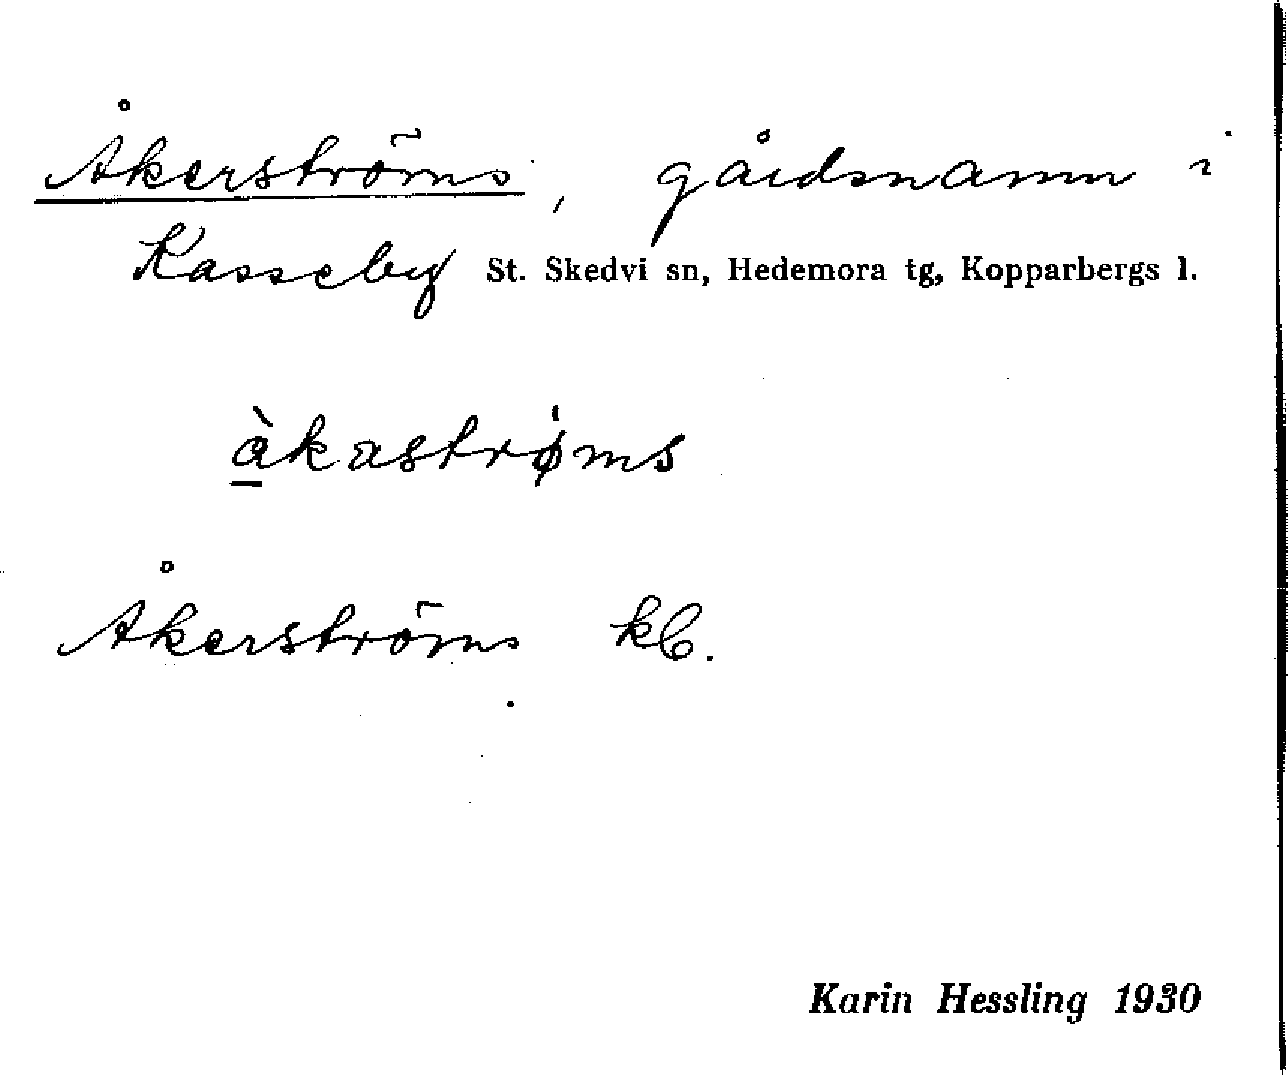 Åkerströms, gårdsnamn i
Kasseby St. Skedvi sn, Hedemora tg, Kopparbergs l.
å̀kastrǿms
Åkerströms kb.
Karin Hessling 1930